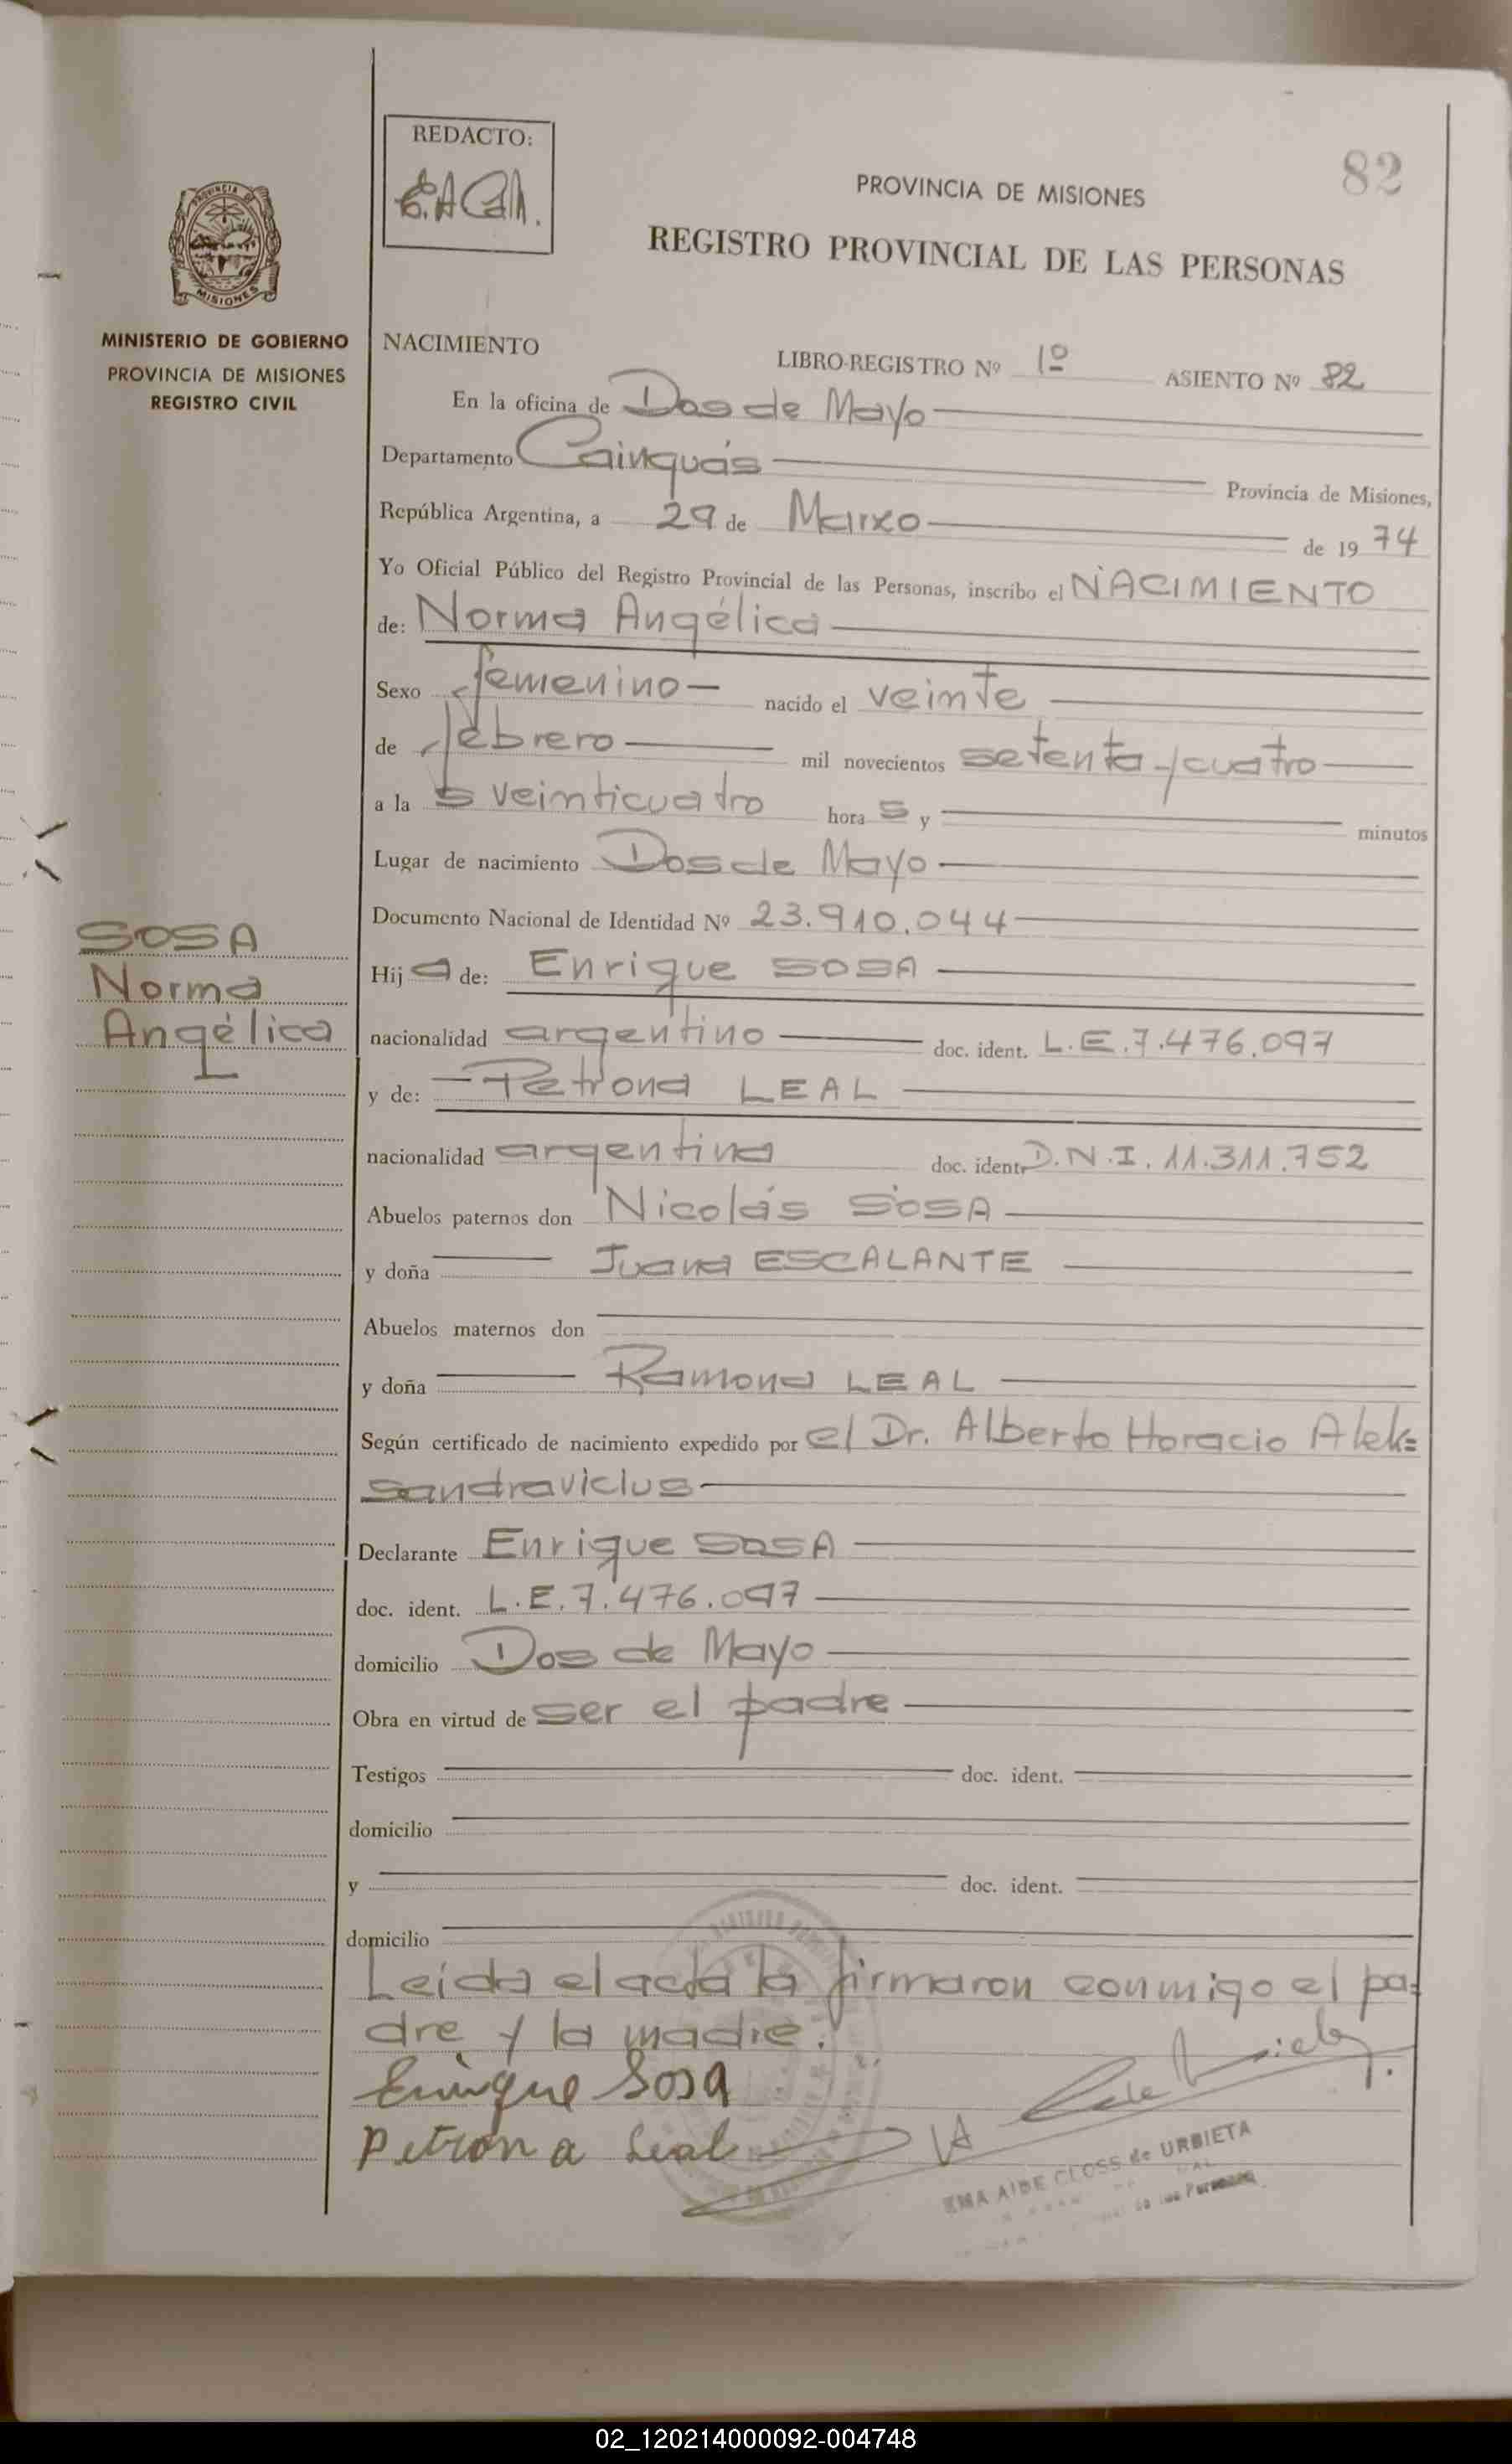 REDACTO:
E.A.Cdh.
82
PROVINCIA DE MISIONES
REGISTRO PROVINCIAL DE LAS PERSONAS
PROVINCIA DE
MISIONES
MINISTERIO DE GOBIERNO
PROVINCIA DE MISIONES
REGISTRO CIVIL
NACIMIENTO
LIBRO-REGISTRO Nº 1º ASIENTO Nº 82
En la oficina de Dos de Mayo
Departamento Cainguás Provincia de Misiones,
República Argentina, a 29 de Marzo de 1974
Yo Oficial Público del Registro Provincial de las Personas, inscribo el NACIMIENTO
de: Norma Angélica
Sexo femenino nacido el veinte
de febrero mil novecientos setenta y cuatro
a las veinticuatro horas y minutos
Lugar de nacimiento Dos de Mayo
Documento Nacional de Identidad Nº 23.910.044
SOSA
Norma
Angélica
Hija de: Enrique SOSA
nacionalidad argentino doc. ident. L.E.7.476.097
y de: Petrona LEAL
nacionalidad argentina doc. ident. D.N.I. 11.311.752
Abuelos paternos don Nicolás SOSA
y doña Juana ESCALANTE
Abuelos maternos don
y doña Ramona LEAL
Según certificado de nacimiento expedido por el Dr. Alberto Horacio Alek=
sandravicius
Declarante Enrique SOSA
doc. ident. L.E.7.476.097
domicilio Dos de Mayo
Obra en virtud de ser el padre
Testigos doc. ident.
domicilio
y doc. ident.
domicilio
Leída el acta la firmaron conmigo el pa=
dre y la madre.
Enrique Sosa
Petrona Leal
EMA AIDE CLOSS de URBIETA
de las Personas
02_120214000092-004748